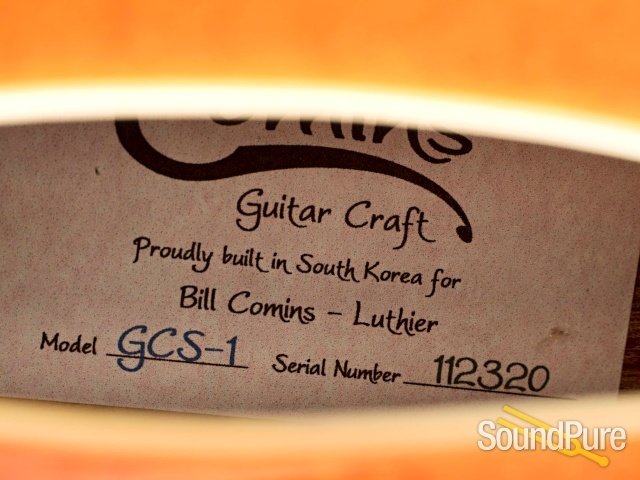 Comins
Guitar Craft
Proudly built in South Korea for
Bill Comins - Luthier
Model GCS-1 Serial Number 112320
SoundPure